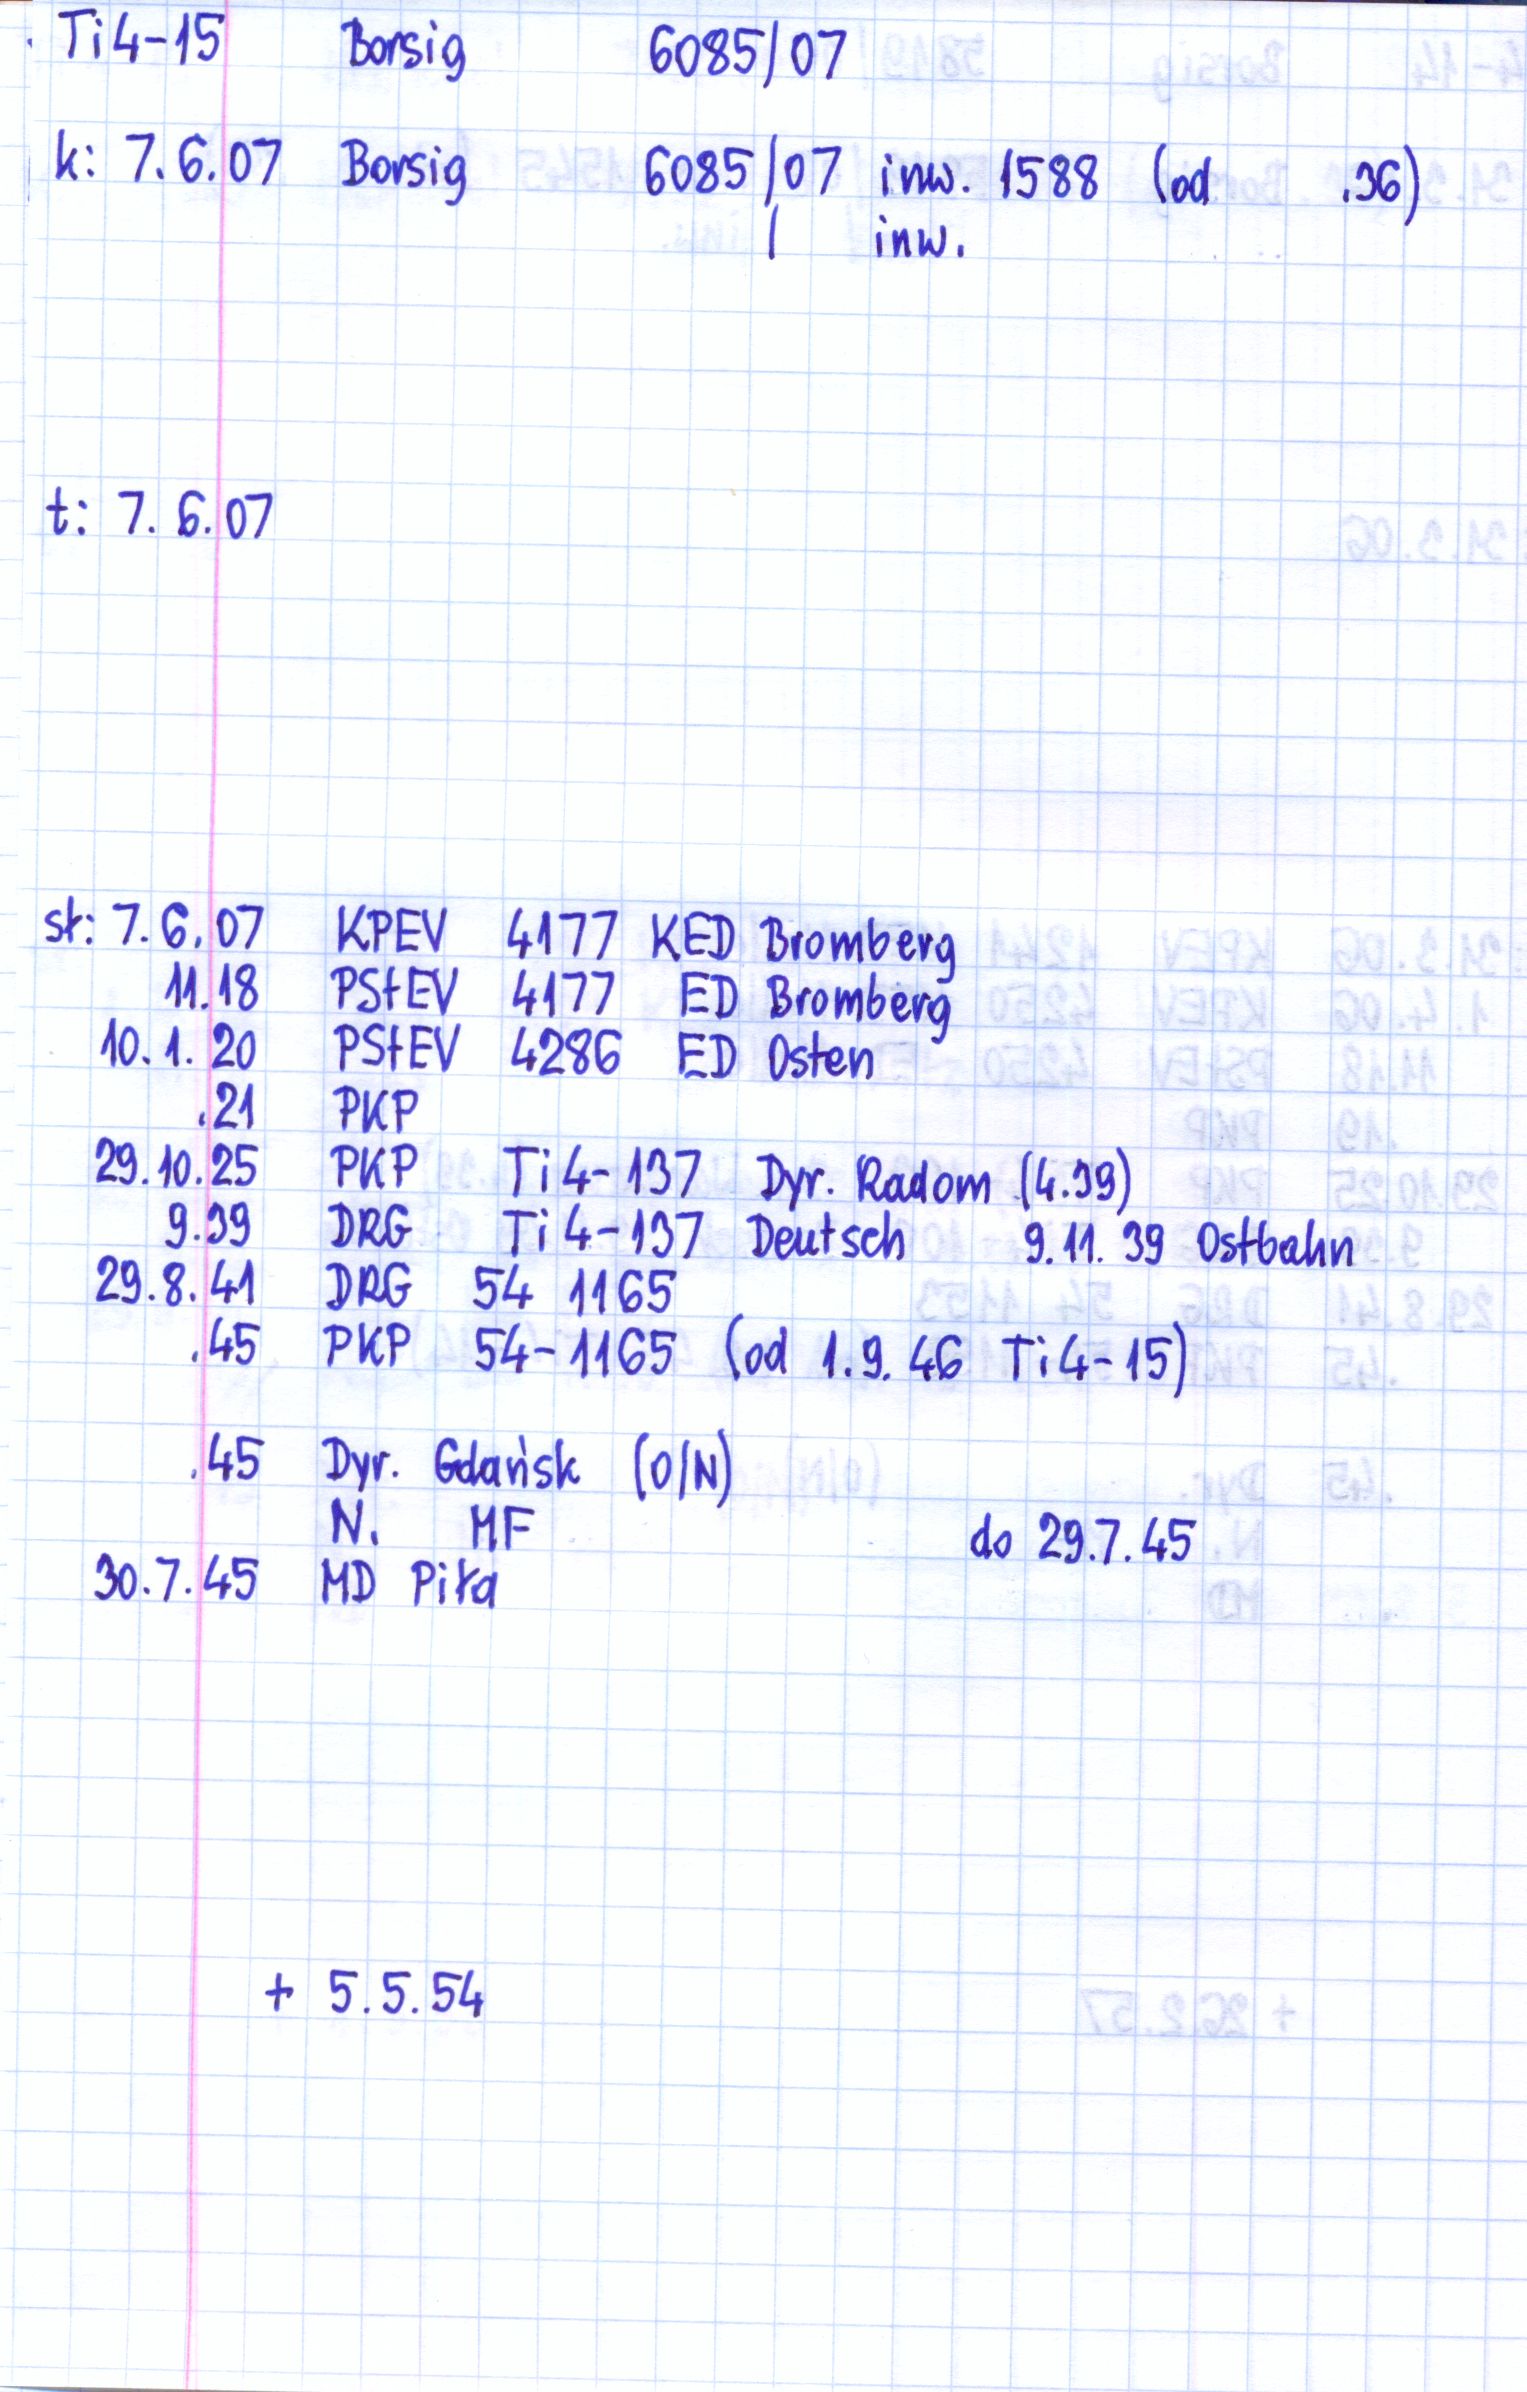 Ti4-15 Borsig 6085/07
k: 7.6.07 Borsig 6085/07 inw. 1588 (od .36)
/ inw.
t: 7.6.07
st: 7.6.07 KPEV 4177 KED Bromberg
11.18 PStEV 4177 ED Bromberg
10.1.20 PStEV 4286 ED Osten
.21 PKP
29.10.25 PKP Ti4-137 Dyr. Radom (4.39)
9.39 DRG Ti4-137 Deutsch 9.11.39 Ostbahn
29.8.41 DRG 54 1165
.45 PKP 54-1165 (od 1.9.46 Ti4-15)
.45 Dyr. Gdańsk (O/N)
N. MF do 29.7.45
30.7.45 MD Piła
+ 5.5.54